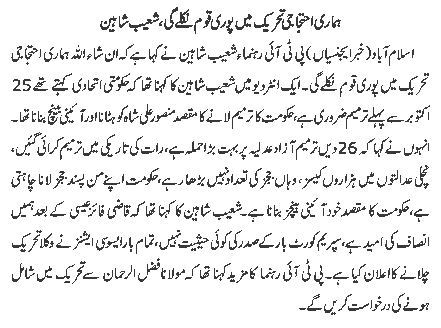 ہماری احتجاجی تحریک میں پوری قوم نکلے گی، شعیب شاہین
اسلام آباد (خبر ایجنسیاں) پی ٹی آئی رہنماء شعیب شاہین نے کہا ہے کہ ان شاء اللہ ہماری احتجاجی
تحریک میں پوری قوم نکلے گی۔ ایک انٹرویو میں شعیب شاہین کا کہنا تھا کہ حکومتی اتحادی کہتے تھے 25
اکتوبر سے پہلے ترمیم ضروری ہے، حکومت کا ترمیم لانے کا مقصد منصور علی شاہ کو ہٹانا اور آئینی بینچ بنانا تھا۔
انہوں نے کہا کہ 26 ویں ترمیم آزاد عدلیہ پر بہت بڑا حملہ ہے، رات کی تاریکی میں ترمیم کرائی گئیں،
نچلی عدالتوں میں ہزاروں کیسز، وہاں ججز کی تعداد نہیں بڑھا رہے، حکومت اپنے من پسند ججز لانا چاہتی
ہے، حکومت کا مقصد خود آئینی بینچز بنانا ہے۔ شعیب شاہین کا کہنا تھا کہ قاضی فائز عیسی کے بعد ہمیں
انصاف کی امید ہے، سپریم کورٹ بار کے صدر کی کوئی حیثیت نہیں، تمام بار ایسوی ایشنز نے وکلا تحریک
چلانے کا اعلان کیا ہے۔ پی ٹی آئی رہنما کا مزید کہنا تھا کہ مولانا فضل الرحمان سے تحریک میں شامل
ہونے کی درخواست کریں گے۔